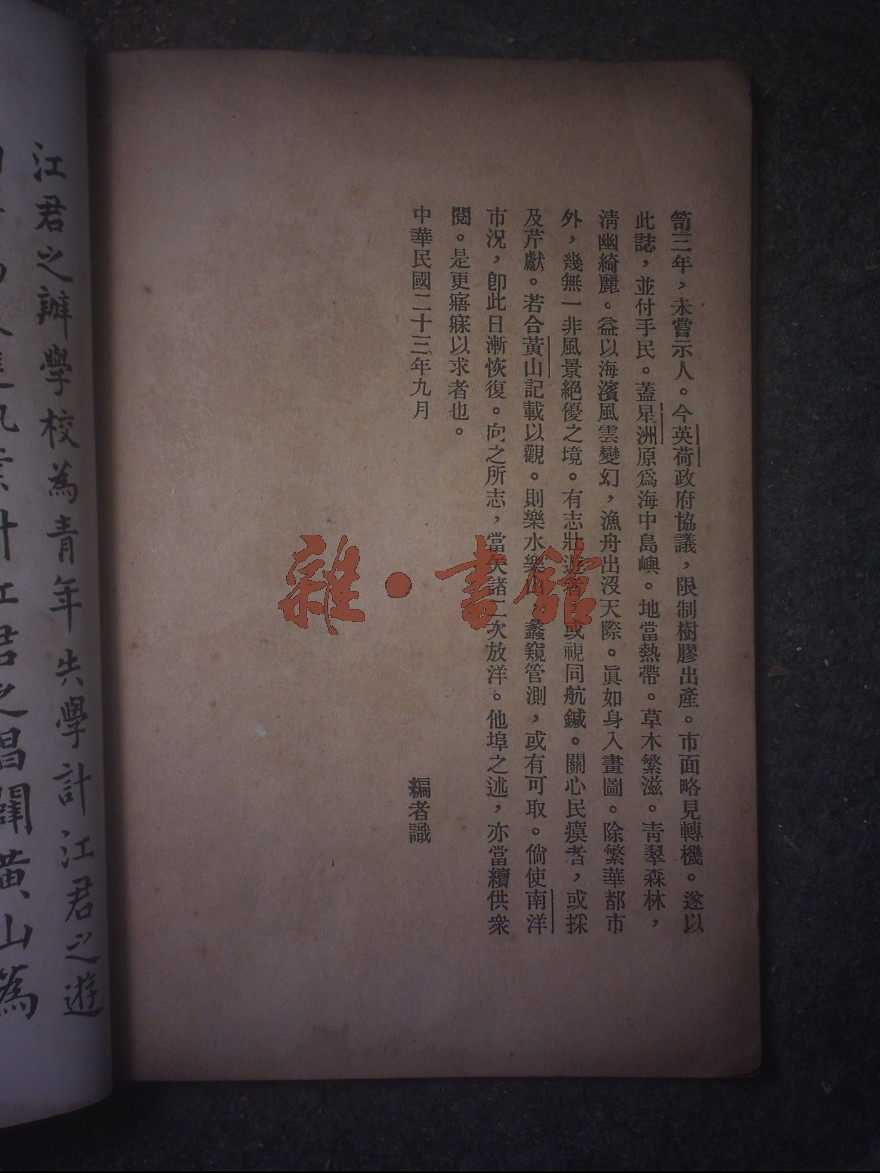 笥三年，未嘗示人。今英荷政府協議，限制樹膠出產。市面略見轉機。遂以
此誌，並付手民。蓋星洲原爲海中島嶼。地當熱帶。草木繁滋。青翠森林，
清幽綺麗。益以海濱風雲變幻，漁舟出沒天際。眞如身入畫圖。除繁華都市
外，幾無一非風景絕優之境。有志壯遊者，或視同航鍼。關心民瘼者，或採
及芹獻。若合黃山記載以觀。則樂水樂山，蠡窺管測，或有可取。倘使南洋
市況，卽此日漸恢復。向之所志，當矢諸二次放洋。他埠之述，亦當續供衆
閱。是更寤寐以求者也。
中華民國二十三年九月
編者識
雜·書館
江君之辦學校為青年失學計江君之遊
計江君之倡闢黃山為